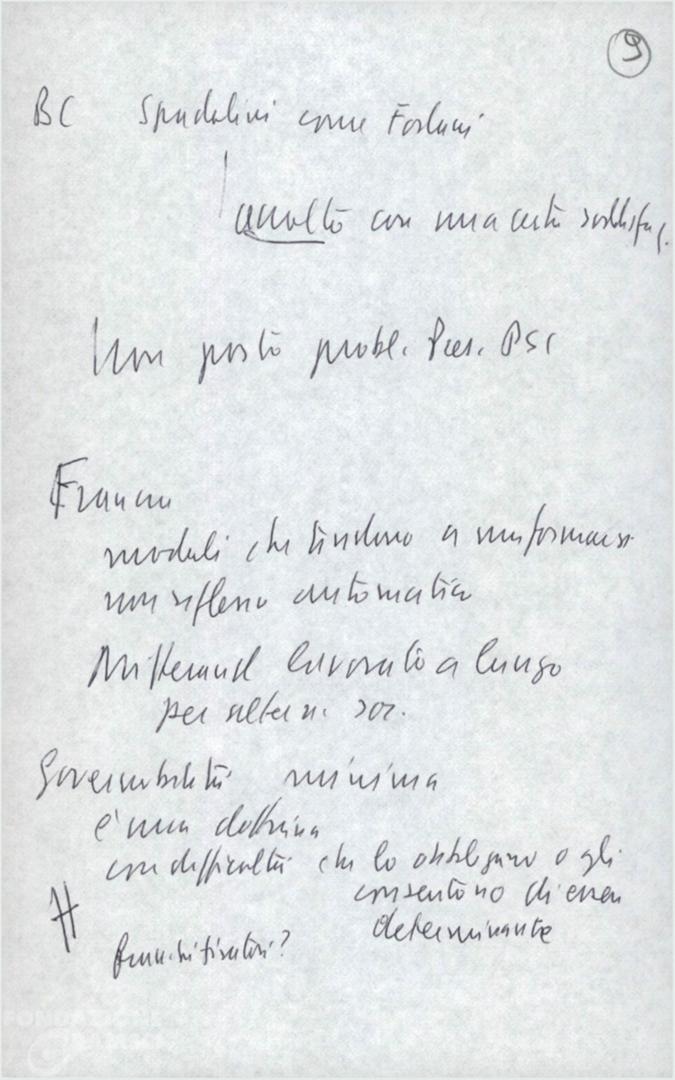 9
BC Spadolini come Forlani
accolto con una certa soddisfaz.
Non posto probl. Pres. PSI
Francia
moduli che tendono a uniformarsi
non riflesso automatico
Mitterand lavorato a lungo
per altern. soc.
Governabilità minima
è una dottrina
con difficoltà che lo obbligano o gli
consentono di essere
determinante
FONDAZIONE